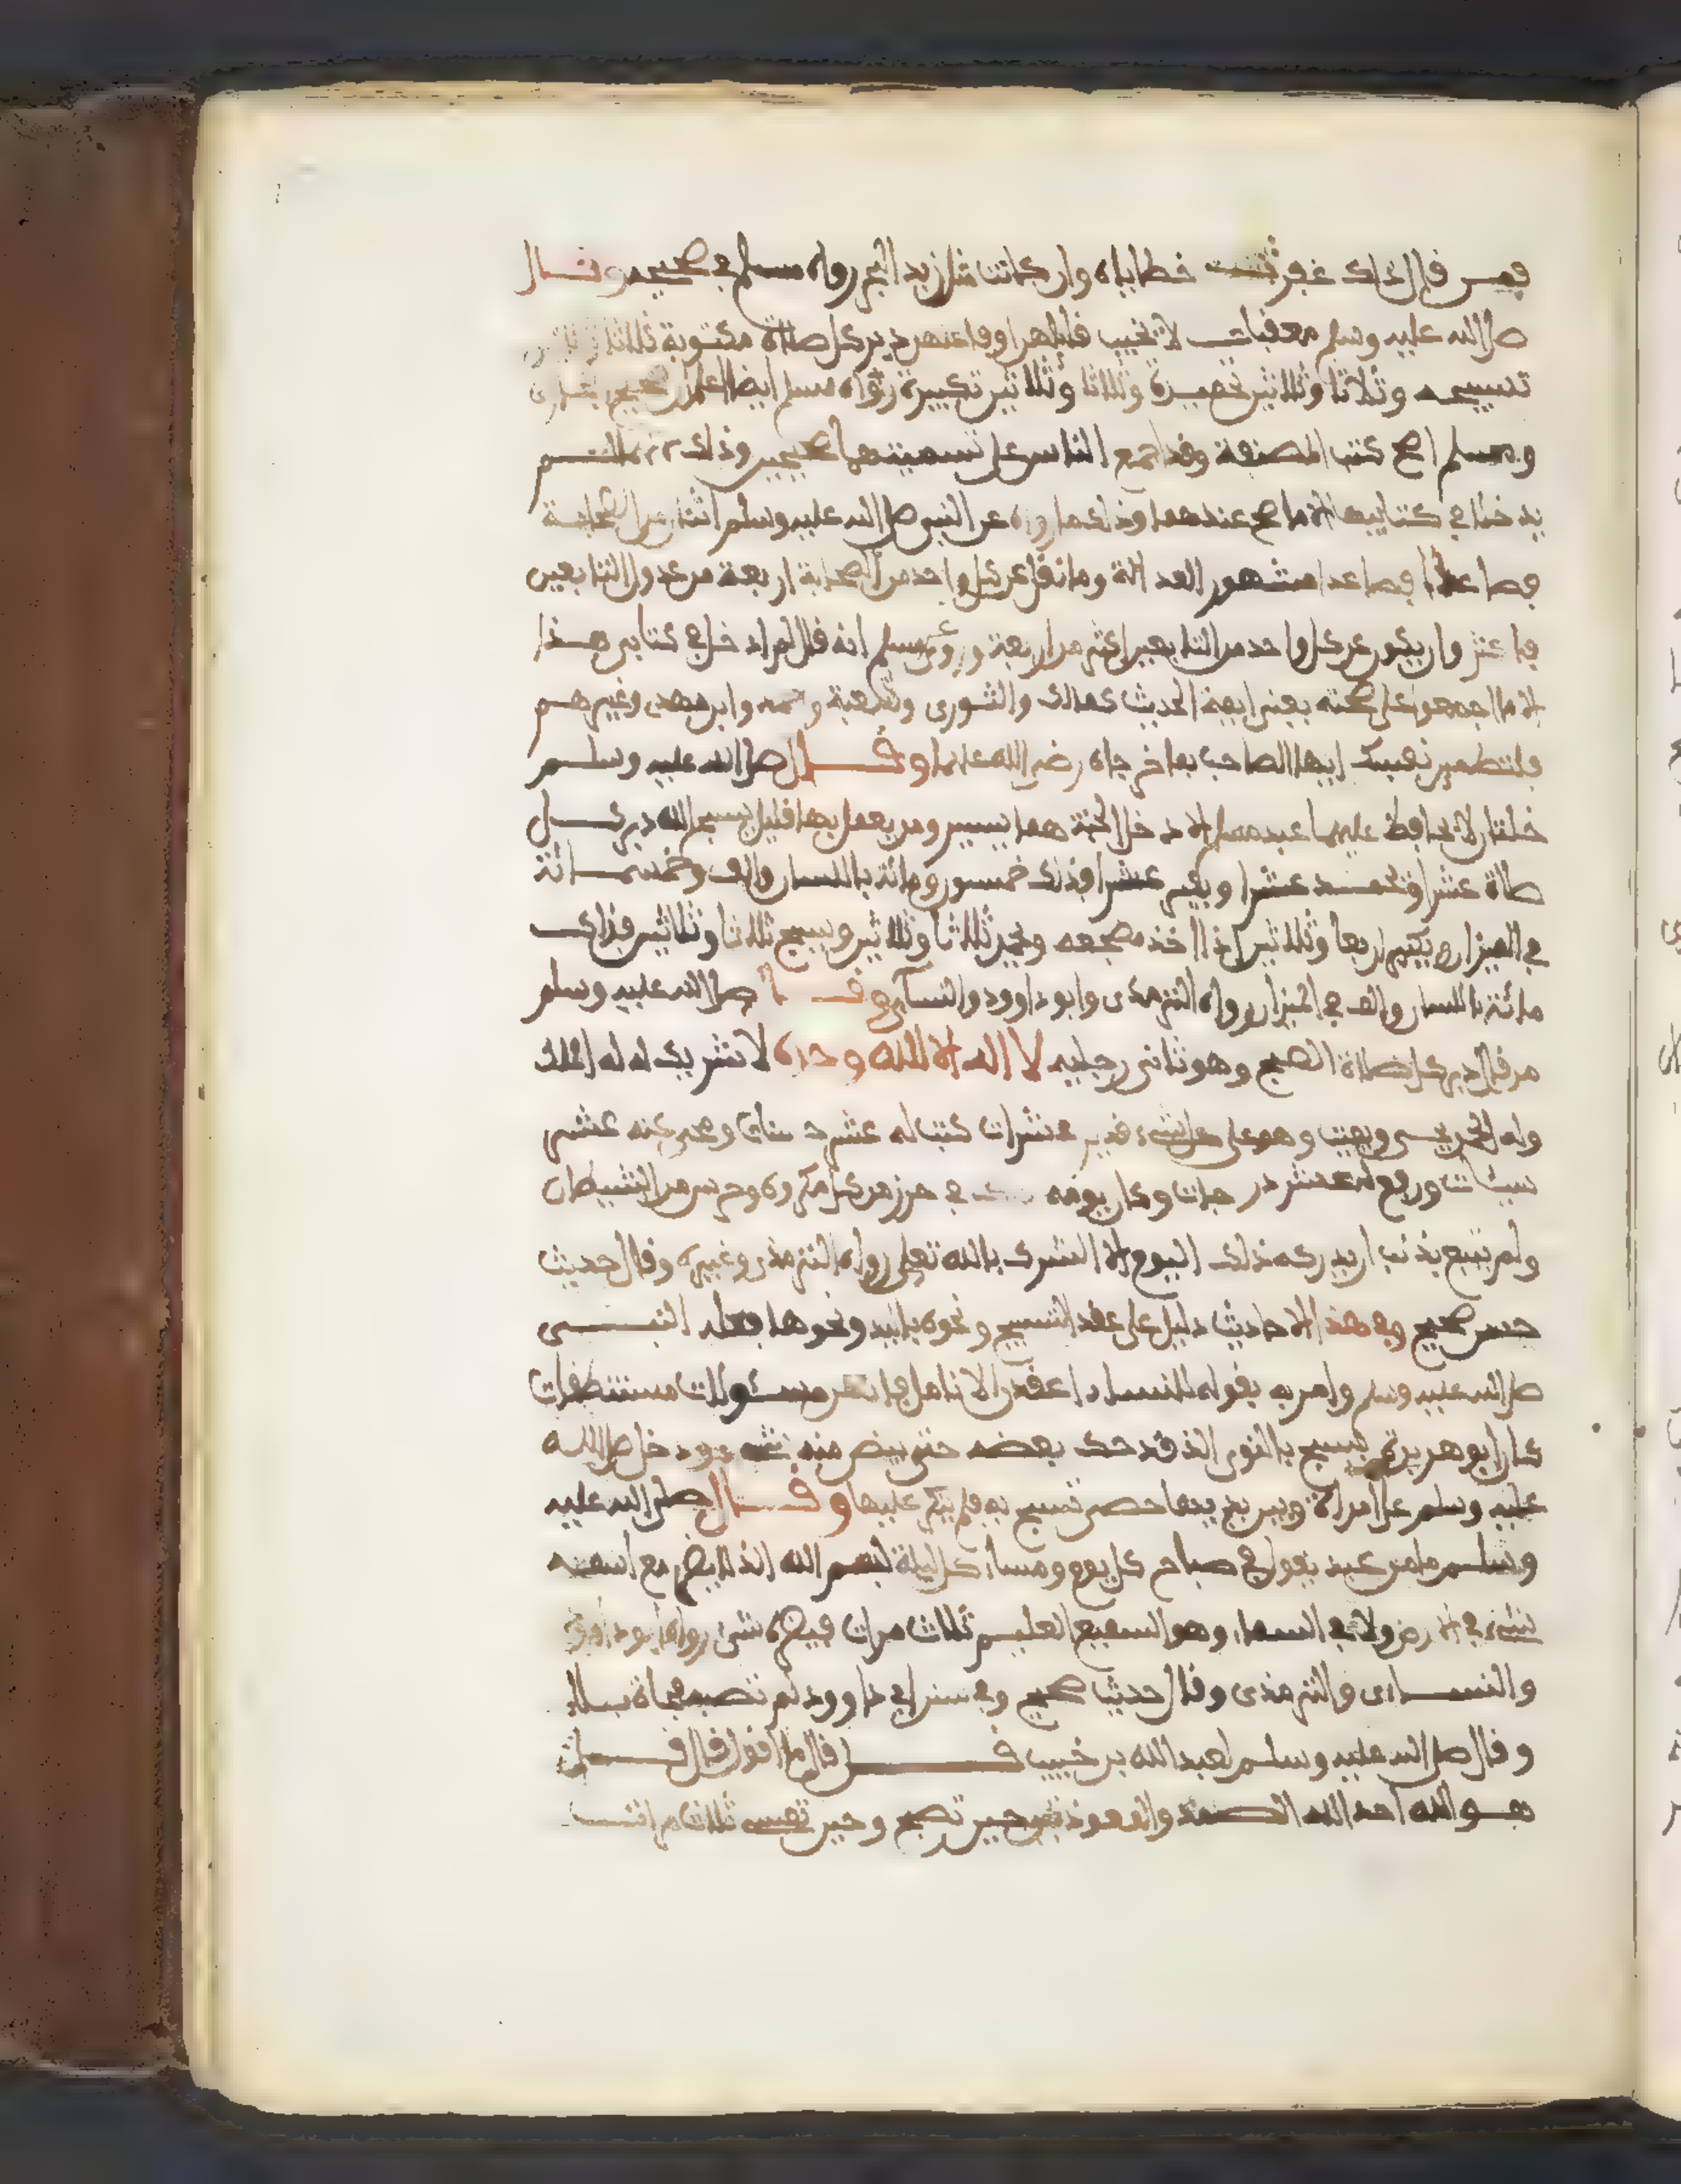 فمن قال ذلك غفرت خطاياه وان كانت مثل زبد البحر رواه مسلم في صحيحه وقال
صلى الله عليه وسلم معقبات لا تخيب قايلهن او فاعلهن دبر كل صلاة مكتوبة ثلاثا وثلاثين
تسبيحه وثلاثا وثلاثين تحميدة وثلاثا وثلاثين تكبيرة رواه مسلم ايضا اعلم ان صحيح البخارى
ومسلم اصح كتب المصنفة وقد اجمع الناس على تسميتهما صحيحين وذلك لم
يدخلا في كتابيهما الا ما صح عندهما وذلك ما رواه عن النبي صلى الله عليه وسلم اثنان من الصحابة
فصاعدا فصاعدا مشهور العدالة وما نقل عن كل واحد من الصحابة اربعة من عدول التابعين
فاكثر وان يكون عن كل واحد من التابعين اكثر من اربعة وروى عن مسلم انه قال لم ادخل في كتابي هذا
الا ما اجمعوا على صحته يعني ايمة الحديث كمالك والثورى وشعبة وابن مهدى وغيرهم
فلتطمين نفسك ايها الصاحب بما خرجاه رضي الله عنهما وقال صلى الله عليه وسلم
خلتان لا يحافظ عليهما عبد مسلم الا دخل الجنة هما يسير ومن يعمل بهما قليل يسبح الله دبر كل
صلاة عشرا ويحمد عشرا ويكبر عشرا فذلك خمسون ومائة باللسان والف وخمسمائة
في الميزان ويكبر اربعا وثلاثين اذا اخذ مضجعه ويحمد ثلاثا وثلاثين ويسبح ثلاثا وثلاثين فذلك
مائة باللسان والف في الميزان رواه الترمذى وابو داوود والنسائي وقال صلى الله عليه وسلم
من قال دبر كل صلاة الصبح وهو ثاني رجليه لا اله الا الله وحده لا شريك له له الملك
وله الحمد يحيى ويميت وهو على كل شيء قدير عشرات كتب له عشر حسنات ومحى عنه عشر
سيئات ورفع له عشر درجات وكان يومه في حرز من كل مكروه وحرس من الشيطان
ولم يتبع بذنب ان يدركه ذلك اليوم الا الشرك بالله تعلى رواه الترمذي وغيره وقال حديث
حسن صحيح وفي هذا الاحاديث دليل على عقد التسبيح ونحوه باليد ونحوها فعله النبي
صلى الله عليه وسلم وامر به بقوله للنساء اعقدن الانامل فانهن مسئولات مستنطقات
كان ابو هريرة يسبح بالنوى الذى قد حك بعضه حتى يبض منه ودخل صلى الله
عليه وسلم على امراة وبين يديها حصى تسبح به فلم ينكر عليها وقال صلى الله عليه
وسلم ما من عبد يقول في صباح كل يوم ومساء كل ليلة بسم الله الذى لا يضر مع اسمه
شيء في الارض ولا في السماء وهو السميع العليم ثلاث مرات فيضره شئ رواه ابو داود
والنسائى والترمذى وقال حديث صحيح وفي سنن ابي داوود لم تصبه فجاة بلاء
وقال صلى الله عليه وسلم لعبد الله بن خبيب قل قال ما اقول قال قل
هو الله احد الله الصمد والمعوذتين حين تصبح وحين تمسى ثلاث مرات